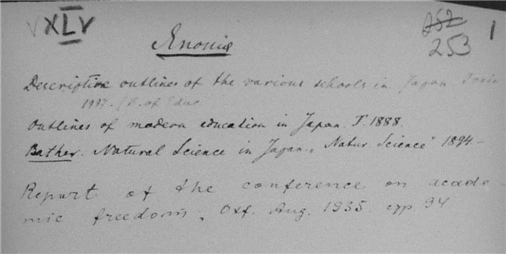 VXLV
252
253
1
Anonis
Descriptive outlines of the various schools in Japan.
of Educ.
Outlines of modern education in Japan. T 1888.
Bather. Natural Science in Japan, Natur Science" 1894 -
Report of the conference on acade-
mic freedom. Oxf. Aug. 1935. 94